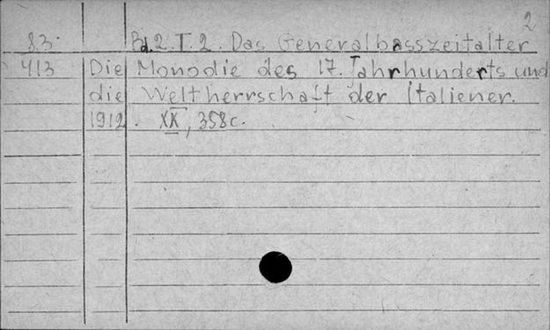 2
83. Bd.2. T.2. Das Generalbasszeitalter
413 Die Monodie des 17. Jahrhunderts und
die Weltherrschaft der Italiener.
1912. XX, 358c.